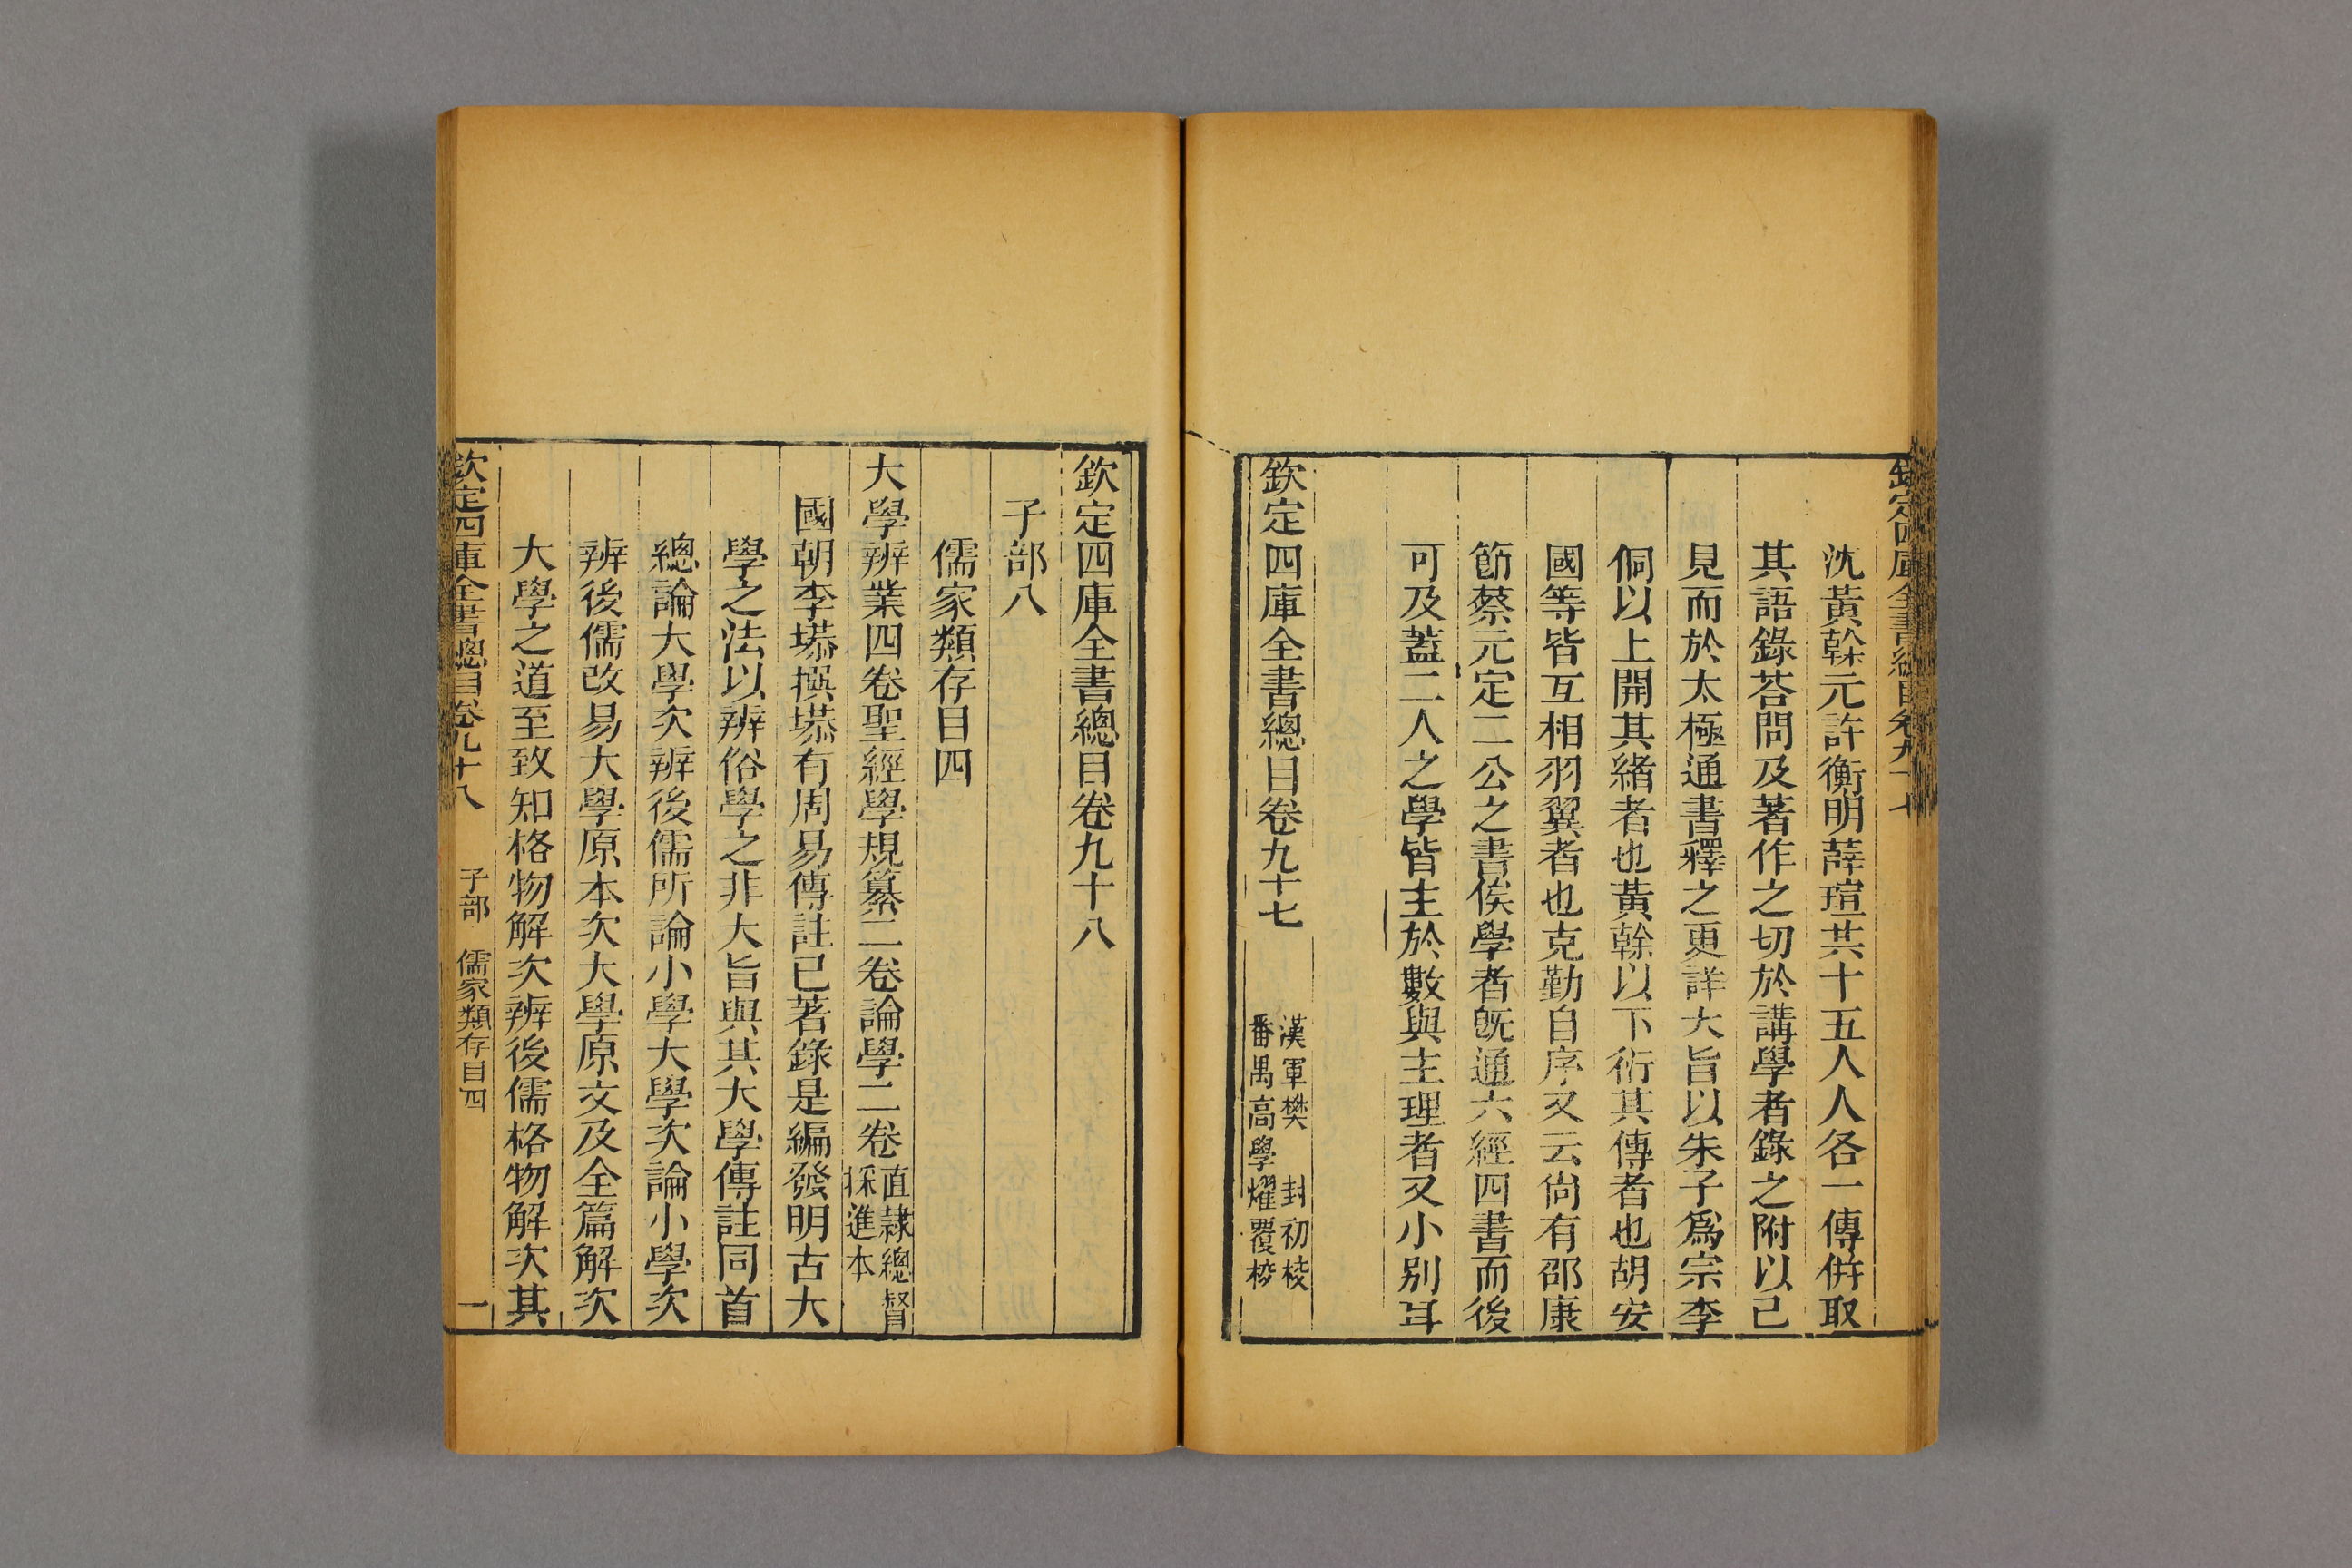 欽定四庫全書總目卷九十七
沈黃榦元許衡明薛瑄共十五人人各一傳併取
其語錄荅問及著作之切於講學者錄之附以己
見而於太極通書釋之更詳大旨以朱子爲宗李
侗以上開其緒者也黃榦以下衍其傳者也胡安
國等皆互相羽翼者也克勤自序又云尙有邵康
節蔡元定二公之書俟學者旣通六經四書而後
可及葢二人之學皆主於數與主理者又小別耳
欽定四庫全書總目卷九十七
漢軍樊封初校
番禺高學燿覆校
欽定四庫全書總目卷九十八
子部八
儒家類存目四
大學辨業四卷聖經學規纂二卷論學二卷
直隸總督
採進本
國朝李塨撰塨有周易傳註已著錄是編發明古大
學之法以辨俗學之非大旨與其大學傳註同首
總論大學次辨後儒所論小學大學次論小學次
辨後儒改易大學原本次大學原文及全篇解次
大學之道至致知格物解次辨後儒格物解次其
欽定四庫全書總目卷九十八
子部 儒家類存目四
一